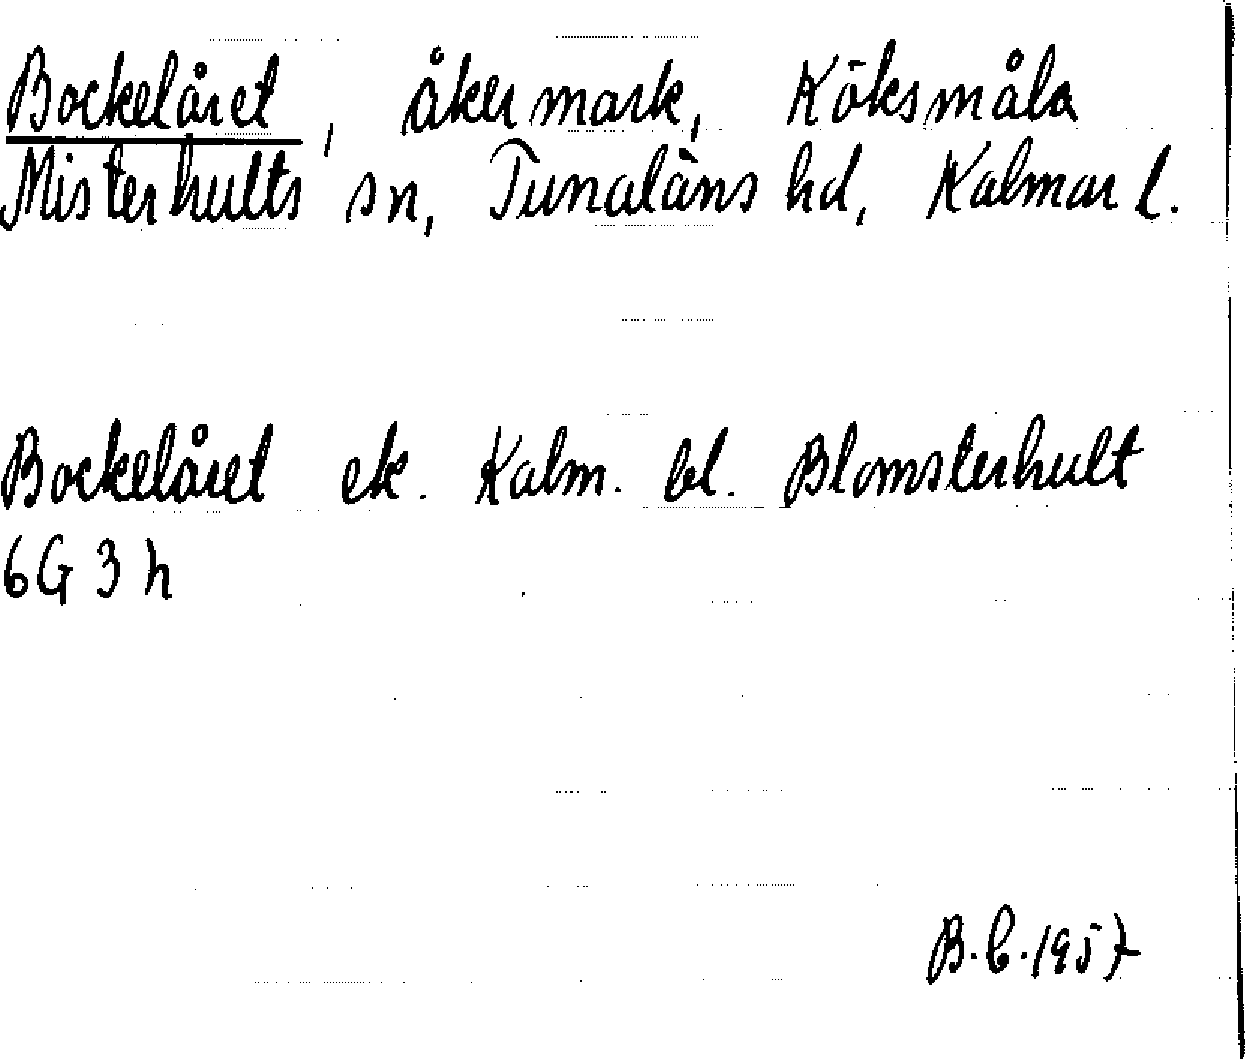 Bockelåret, åkermark, Köksmåla
Misterhults sn, Tunaläns hd, Kalmar l.
Bockelåret ek. Kalm. bl. Blomsterhult
6G 3 h
B.C. 1957